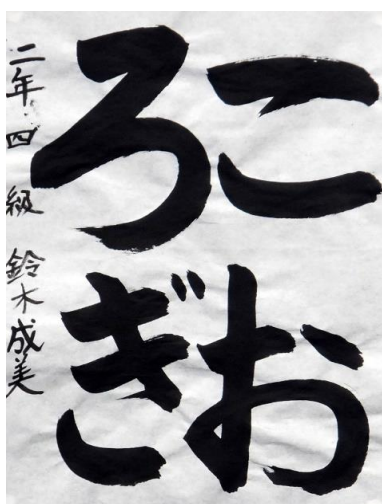 こお
ろぎ
二年 四級 鈴木成美